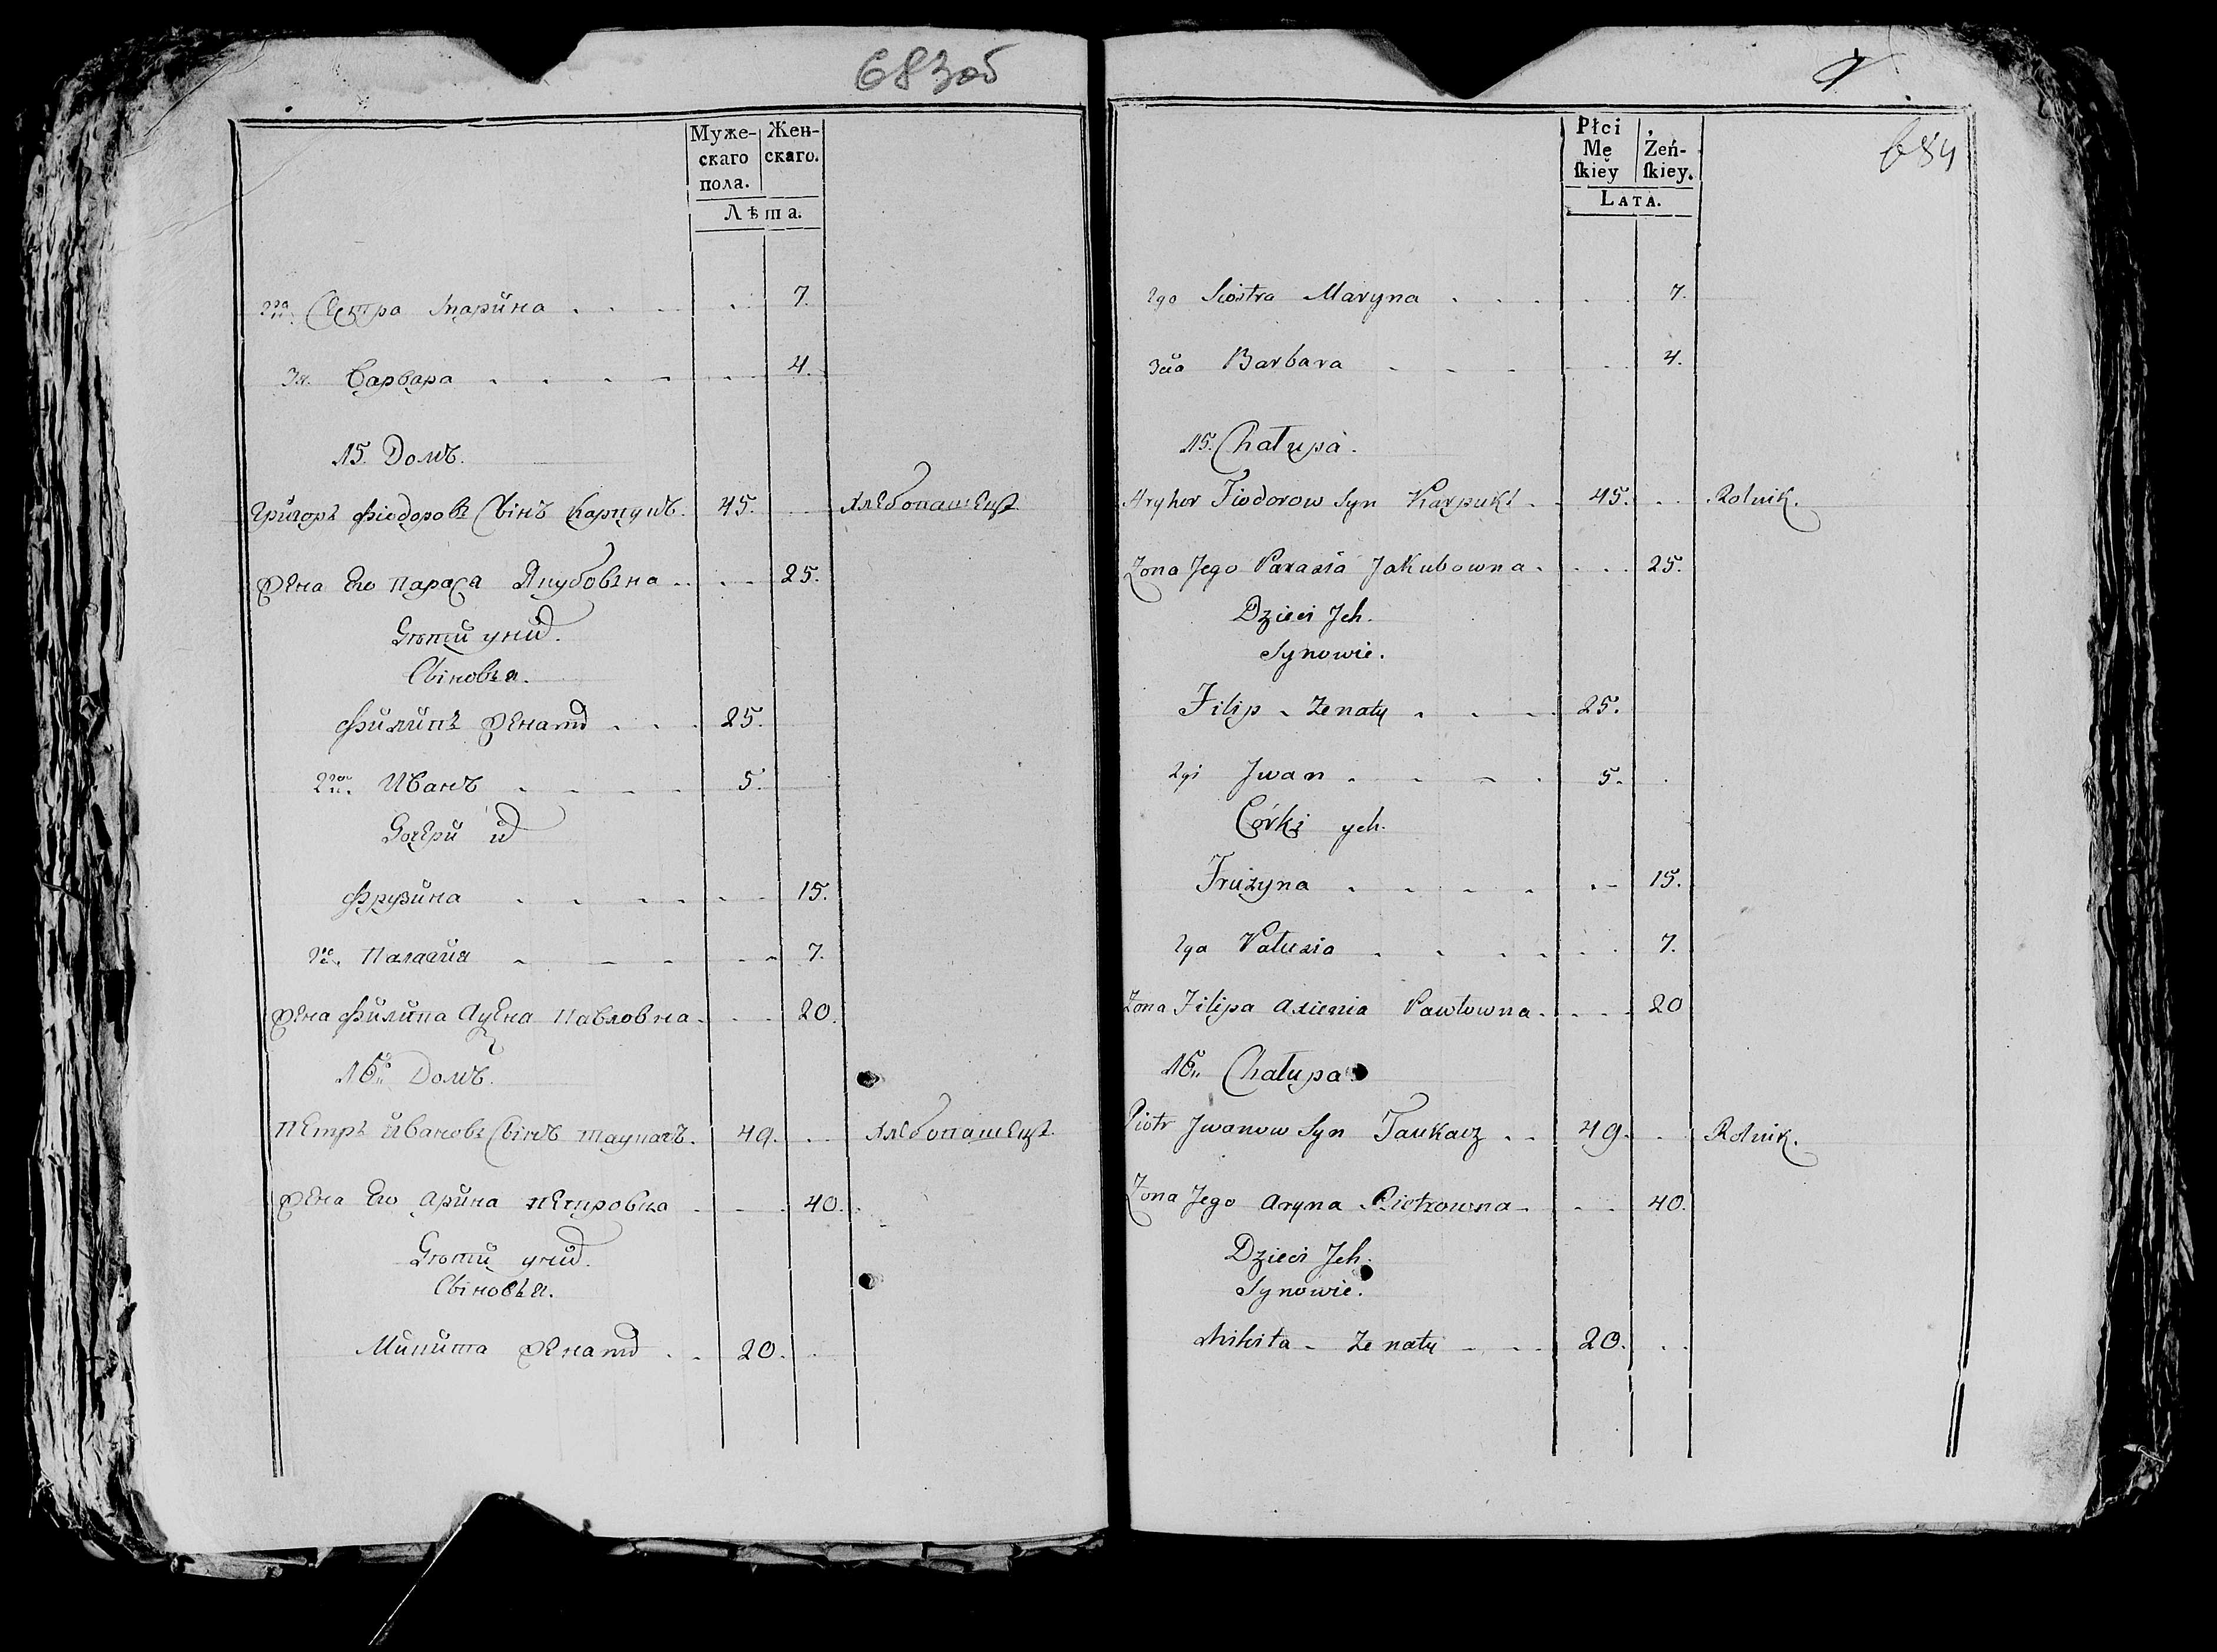 683об
Муже-
скаго
пола.
Жен-
скаго.
Лѣта.
2га Сестра Марина 7.
3я. Варвара 4.
15. Домъ.
Григоръ Фiодоровъ Свiнъ Карпукъ. 45. Хлебопашецъ
Жена Его Параса Якубовъна 25.
Дѣти уних.
Свiновья.
Филипъ Женатй 25.
2гой Иванъ 5.
Дочери их
Фрузина 15.
2га. Паласия 7.
Жена Филипа Аксена Павловна 20.
16й Домъ.
Петръ Ивановъ Свiнъ Таукачъ. 49. Хлебопашецъ.
Жена Его Арина Петровна 40.
Дѣти уних.
Свiновья.
Микита Женатй 20.
684
Płci
Mę
ſkiey
Żeń-
ſkiey.
LATA.
2go Siostra Maryna 7.
3cia Barbara 4.
15. Chałupa.
Hryhor Fiodorow Syn Karpuk 45. Rolnik.
Zona Jego Parasia Jakubowna 25.
Dzieci Jch.
Synowie.
Filip Zenaty 25.
2gi Jwan 5.
Córki ych.
Fruzyna 15.
2ga Pałusia 7.
Zona Filipa Axienia Pawłowna 20
16. Chałupa
Piotr Jwanow Syn Taukacz 49. Rolnik.
Zona Jego Aryna Piotrowna 40.
Dzieci Jch.
Synowie.
Mikita Zenaty 20.